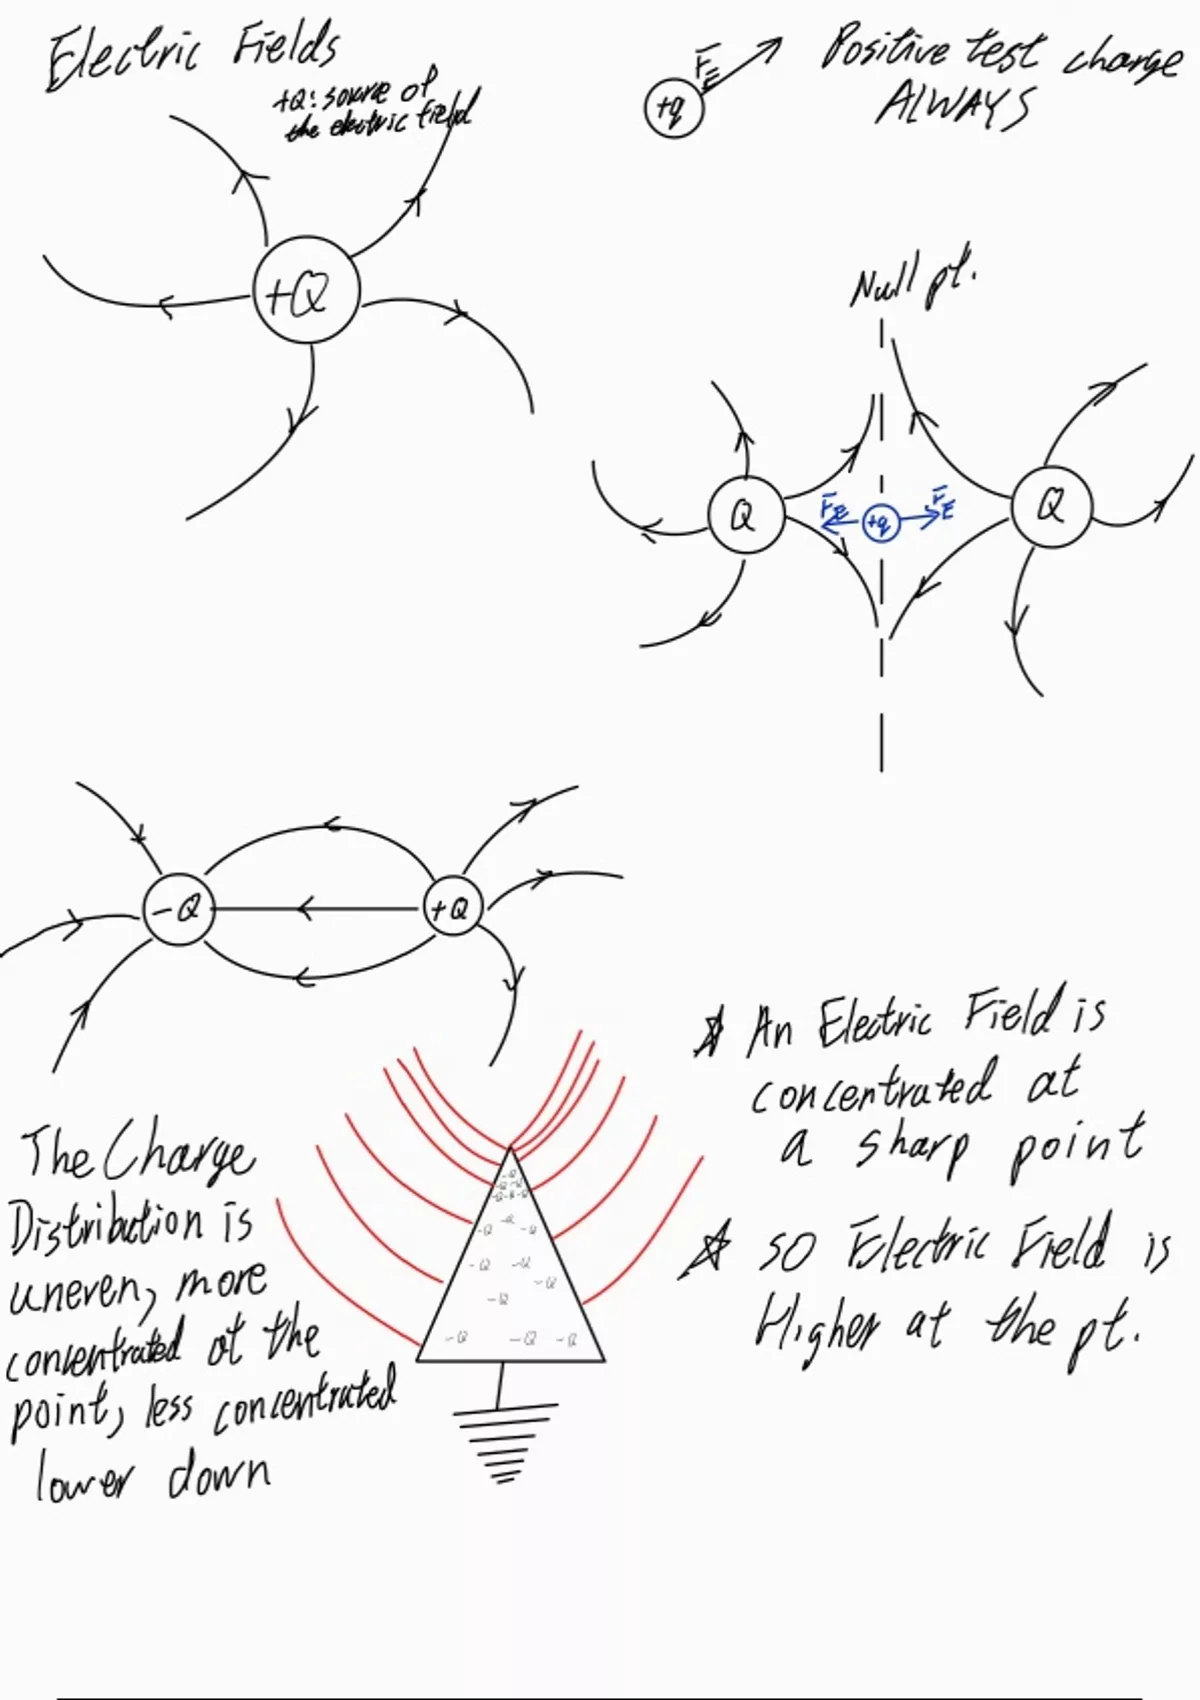 Electric Fields
+Q: source of
the electric field
+Q
F_E
+q
Positive test charge
ALWAYS
Null pt.
Q
F_E
+q
F_E
Q
-Q
+Q
The Charge
Distribution is
uneven, more
concentrated at the
point, less concentrated
lower down
-Q
-Q -Q
-Q-Q-Q
-Q
-Q -Q
-Q -Q
-Q
-Q
-Q -Q -Q
☆ An Electric Field is
concentrated at
a sharp point
☆ so Electric Field is
Higher at the pt.